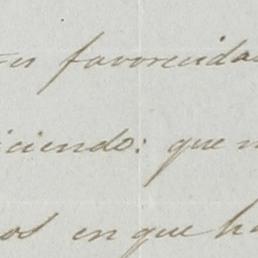 favorecida
iciendo: que
os en que ha